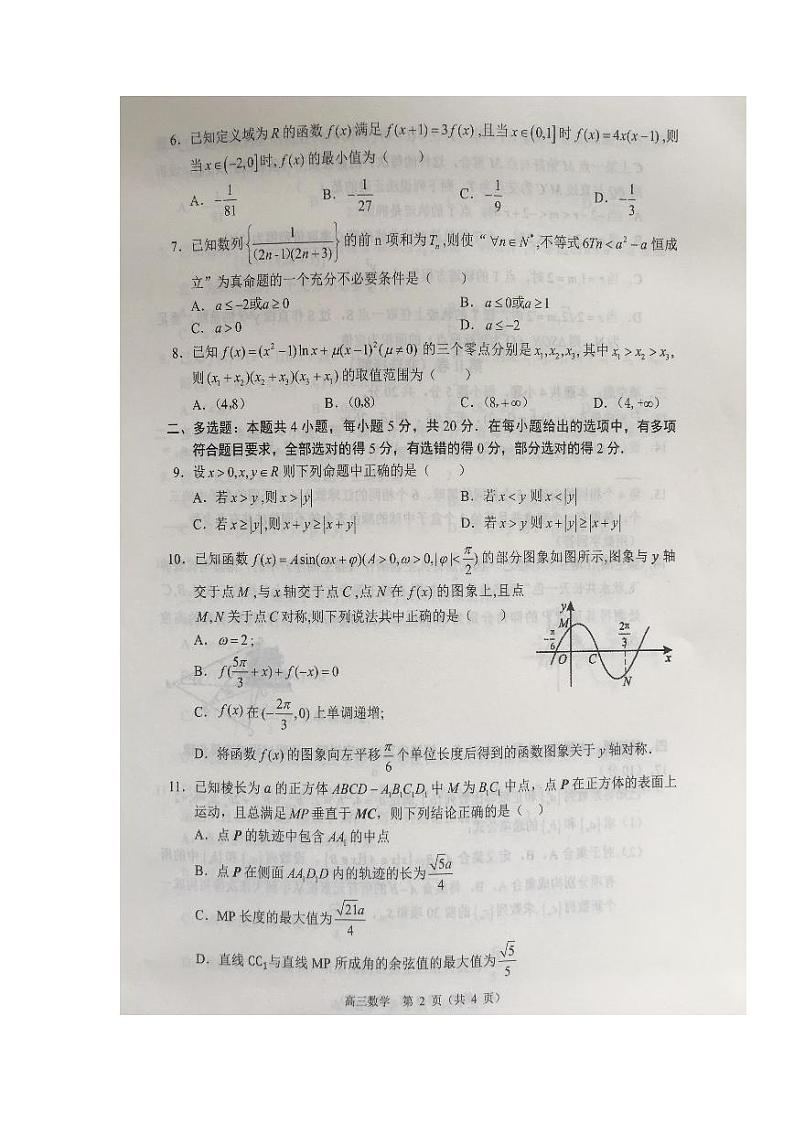 6. 已知定义域为 R 的函数 f(x) 满足 f(x+1)=3f(x) ,且当 x∈(0,1] 时 f(x)=4x(x−1) ,则
当 x∈(−2,0] 时, f(x) 的最小值为（ ）
A. −1/81 B. −1/27 C. −1/9 D. −1/3
7. 已知数列 {1/((2n-1)(2n+3))} 的前 n 项和为 Tₙ ,则使“ ∀n∈N* ,不等式 6Tn<a²−a 恒成
立”为真命题的一个充分不必要条件是（ ）
A. a≤−2或a≥0 B. a≤0或a≥1
C. a>0 D. a≤−2
8. 已知 f(x)=(x²−1)ln x+μ(x−1)²(μ≠0) 的三个零点分别是 x₁,x₂,x₃, 其中 x₁>x₂>x₃,
则 (x₁+x₂)(x₂+x₃)(x₃+x₁) 的取值范围为（ ）
A. (4,8) B. (0,8) C. (8,+∞) D. (4,+∞)
二、多选题：本题共 4 小题，每小题 5 分，共 20 分．在每小题给出的选项中，有多项
符合题目要求，全部选对的得 5 分，有选错的得 0 分，部分选对的得 2 分．
9. 设 x>0,x,y∈R 则下列命题中正确的是（ ）
A. 若 x>y ,则 x>|y| B. 若 x<y 则 x<|y|
C. 若 x≥|y| ,则 x+y≥|x+y| D. 若 x>y 则 x+|y|≥|x+y|
10. 已知函数 f(x)=Asin(ωx+φ)(A>0,ω>0,|φ|<π/2) 的部分图象如图所示,图象与 y 轴
交于点 M ,与 x 轴交于点 C ,点 N 在 f(x) 的图象上,且点
M,N 关于点 C 对称,则下列说法其中正确的是（ ）
A. ω=2;
B. f(5π/3+x)+f(−x)=0
C. f(x) 在 (−2π/3,0) 上单调递增;
D. 将函数 f(x) 的图象向左平移 π/6 个单位长度后得到的函数图象关于 y 轴对称.
y
M
−π/6
O
C
2π/3
x
N
11. 已知棱长为 a 的正方体 ABCD−A₁B₁C₁D₁ 中 M 为 B₁C₁ 中点，点 P 在正方体的表面上
运动，且总满足 MP 垂直于 MC，则下列结论正确的是（ ）
A. 点 P 的轨迹中包含 AA₁ 的中点
B. 点 P 在侧面 AA₁D₁D 内的轨迹的长为 √5a/4
C. MP 长度的最大值为 √21a/4
D. 直线 CC₁与直线 MP 所成角的余弦值的最大值为 √5/5
高三数学 第 2 页（共 4 页）